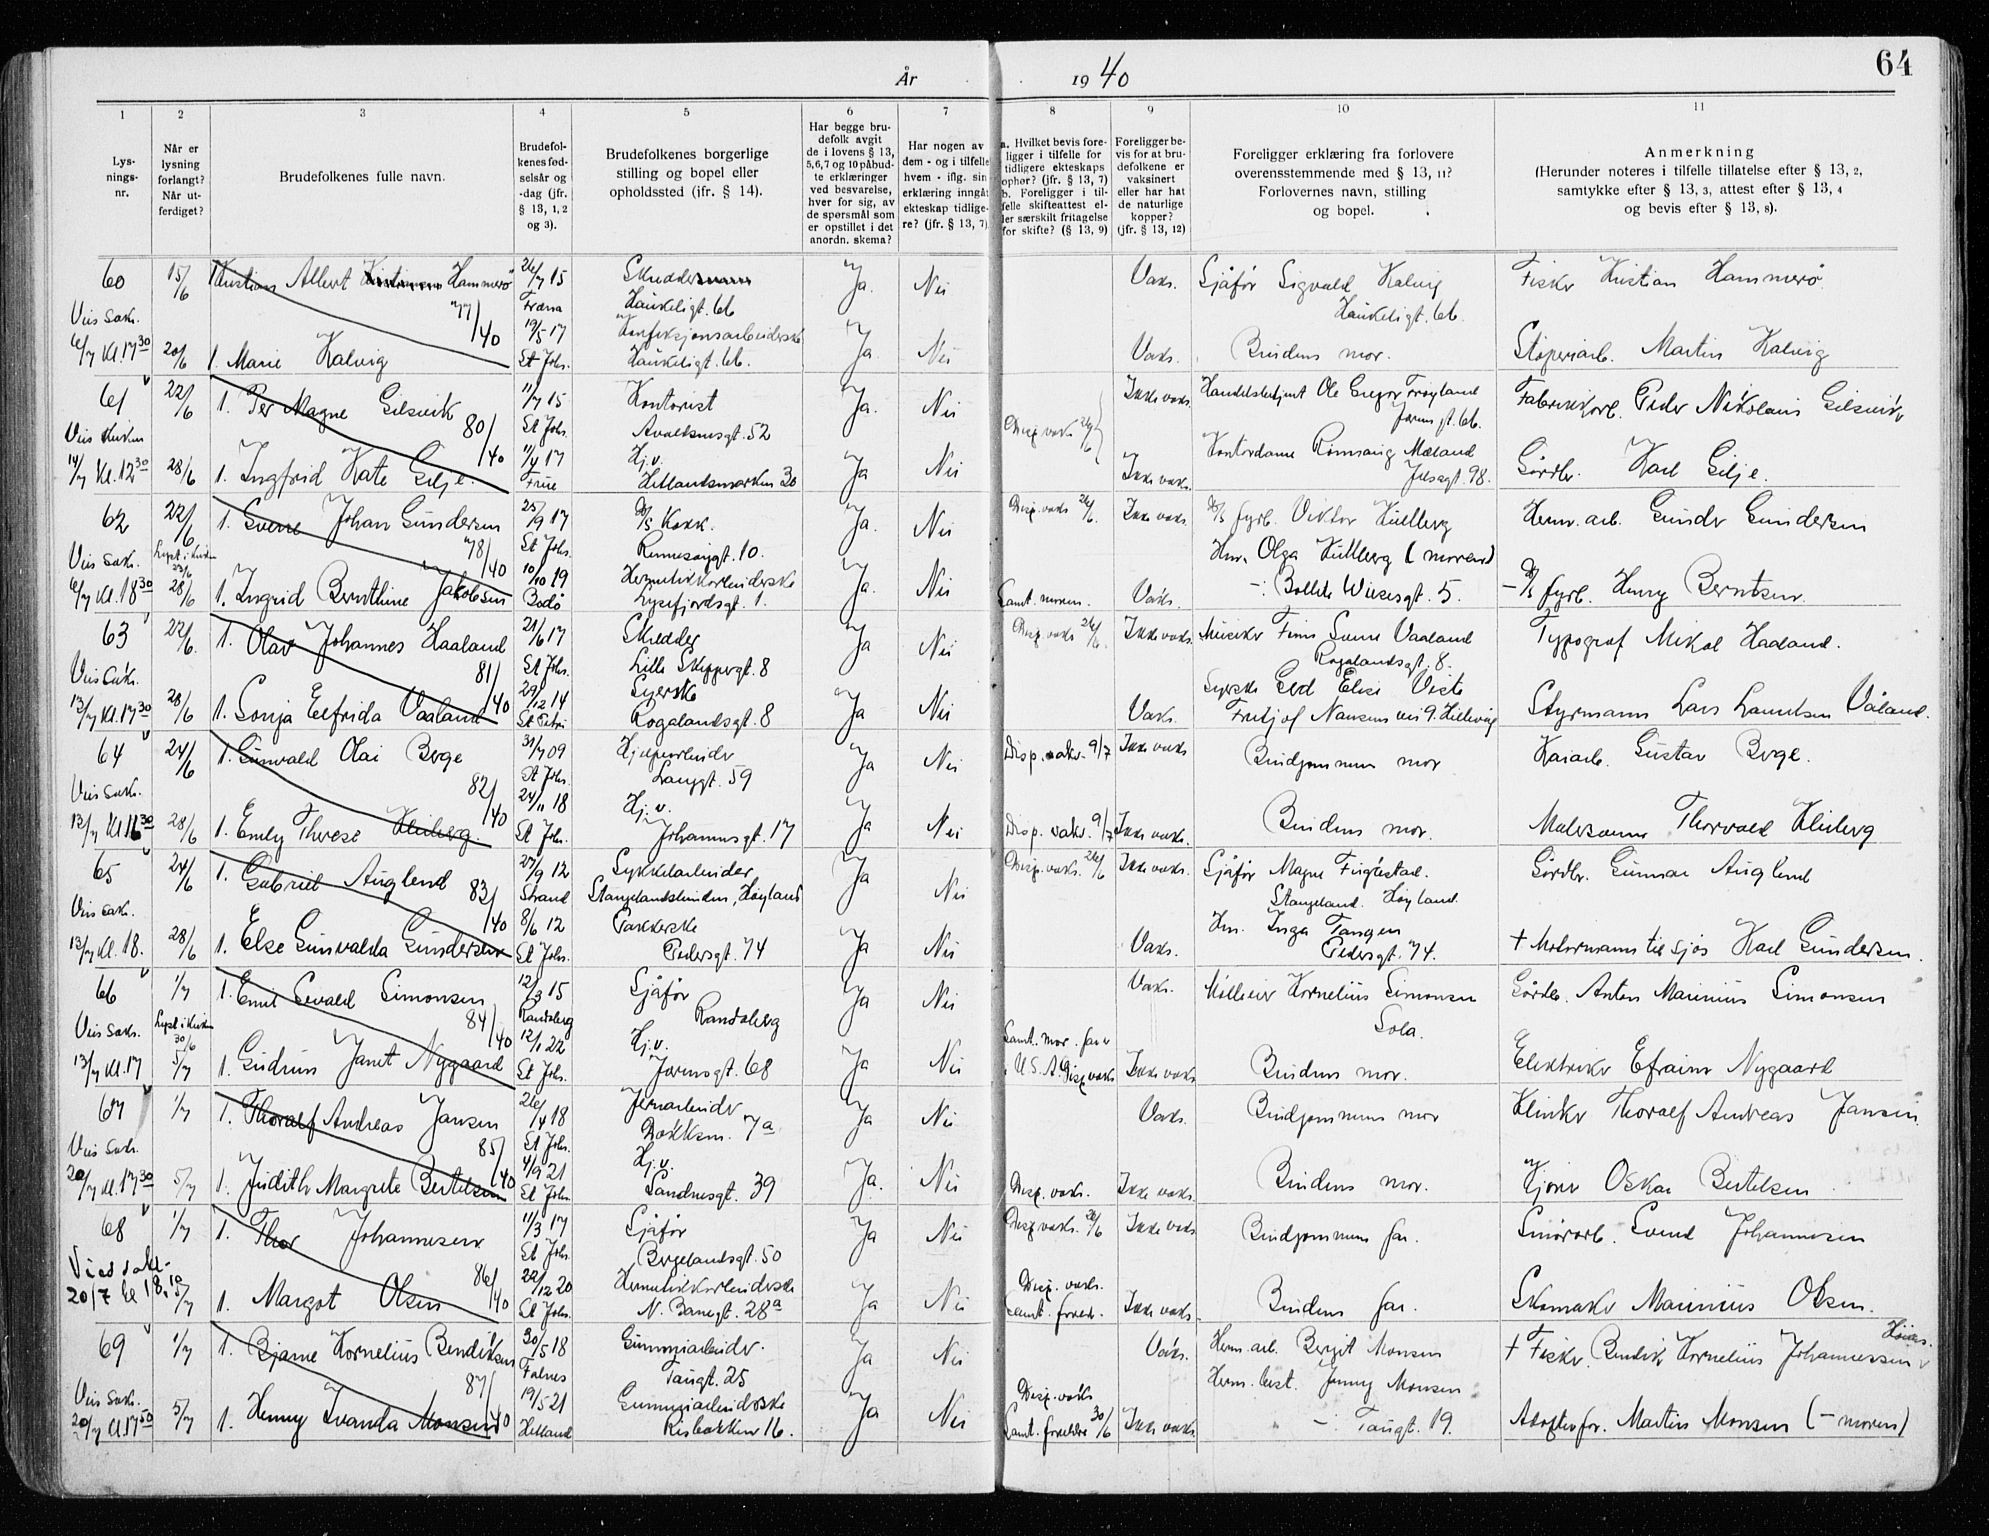 År 1940
64
1 2 3 4 5 6 7 8 9 10 11
Lys-
nings-
nr.
Når er
lysning
forlangt?
Når ut-
ferdiget?
Brudefolkenes fulle navn.
Brudefol-
kenes fød-
selsår og
-dag (jfr.
§ 13, 1, 2
og 3).
Brudefolkenes borgerlige
stilling og bopel eller
opholdssted (jfr. § 14).
Har begge bru-
defolk avgit
de i lovens § 13,
5, 6, 7 og 10 påbud-
te erklæringer
ved besvarelse,
hver for sig, av
de spørsmål som
er opstillet i det
anordn. skema?
Har nogen av
dem - og i tilfelle
hvem - iflg. sin
erklæring inngåt
ekteskap tidlige-
re? (jfr. § 13, 7)
a. Hvilket bevis fore-
ligger i tilfelle for
tidligere ekteskaps
ophør? (jfr. § 13, 7)
b. Foreligger i til-
felle skifteattest el-
ler særskilt fritagelse
for skifte? (§ 13, 9)
Foreligger be-
vis for at bru-
defolkene er
vaksinert
eller har hat
de naturlige
kopper?
(jfr. § 13, 12)
Foreligger erklæring fra forlovere
overensstemmende med § 13, 11?
Forlovernes navn, stilling
og bopel.
Anmerkning
(Herunder noteres i tilfelle tillatelse efter § 13, 2,
samtykke efter § 13, 3, attest efter § 13, 4
og bevis efter § 13, 8).
60 15/6 Kristian Albert Hammerø 26/7 15 Ja. Nei Vaks. Sjåfør Sigvald Kalvig Fisker Kristian Hammerø
Viis Sakr. 77/40 Fræna Haukeligt. 66 Haukeligt. 66.
19/5 17 Konfeksjonsarbeiderske
6/7 Kl. 17 30 20/6 1. Marie Kalvig St Johs. Haukeligt. 66. Ja. Nei Vaks. Brudens mor. Støperiarb. Martin Kalvig
61 22/6 1. Per Magne Gilsvik 11/7 15 Kontorist Ja. Nei Ikke vaks. Handelsbetjent Ole Frøyland Fabrikkarb. Peder Nikolais Gilsvik
80/40 St Johs. Avaldsnesgt. 52 Disp. vaks 26/6 Jærengt. 66.
Viis Kirken 11/4 17 Hj. v. Kontordame Rønnaug Mæland
14/7 Kl. 12 30 28/6 1. Ingfrid Kate Gilje True Hetlandsmarken 30 Ja Nei Ikke vaks. Jelsagt. 98. Gårdbr. Karl Gilje.
62 22/6 1. Sverre Johan Gundersen 25/9 17 D/S Kokk. Ja. Nei Disp. vaks 26/6. Ikke vaks. D/S fyrb. Viktor Kullberg Herm. arb. Gunder Gundersen
Viis Sakr. Lyst i Kirken 23/6 78/40 St Johs. Rennesøygt. 10. Hm. Olga Kullberg (moren)
6/7 Kl. 18 30 28/6 1. Ingrid Bernthine Jakobsen 10/10 19 Bodø Hermetikkarbeiderske Lysefjordsgt. 1. Ja. Nei Samt. moren. Vaks. -:- Bollete Wiesesgt. 5. - D/S fyrb. Henry Berntsen.
63 22/6. 1. Olav Johannes Haaland 21/6 17 Skredder Ja Nei Disp. vaks 26/6. Ikke vaks. Musiker Finn Vaaland Typograf Mikal Haaland.
Viis Sakr. 81/40 St Johs. Lille Skippergt. 8 Rogalandsgt. 8.
29/12 14 Syerske Syerske Gyd Elise Viste
13/7 Kl. 17 30 28/6 1. Sonja Elfrida Vaaland St Petri Rogalandsgt. 8 Ja Nei Vaks. Fritjof Nansens vei 9. Hillevåg Styrmann Lars Lauritsen Våland.
64 24/6 1. Gunvald Olai Berge 31/7 09 Hjelpearbeider Ja Nei Disp. vaks. 9/7 Ikke vaks Brudgommens mor Kaiarb. Gustav Berge.
Viis Sakr. 82/40 St Johs. Langgt. 59
24/11 18 Hj. v.
13/7 Kl 16 30 28/6 1. Emly Therese Kleiberg. St Johs. Johannesgt. 17 Ja Nei Disp. vaks. 9/7 Ikke vaks. Brudens mor. Malersvenn Thorvald Kleiberg
65 24/6 1. Gabriel Auglend 27/9 12 Sykkelarbeider Ja Nei Disp. vaks. 26/6 Ikke vaks. Sjåfør Magne Fuglestad. Gårdbr. Gunnar Auglend
Viis Sakr. 83/40 Strand Stangelandslunden, Høyland Stangeland. Høyland
8/6 12 Pakkerske Hm. Inga Tangen
13/7 Kl. 18. 28/6 1. Else Gunvalda Gundersen St Johs. Pedersgt. 74 Ja Nei Vaks. Pedersgt. 74. + Motormann til sjøs Karl Gundersen.
66 1/7 1. Emil Sevald Simonsen 12/3 15 Sjåfør Ja Nei Vaks. Møllerier Kornelius Simonsen Gårdbr. Anton Marinius Simonsen
Viis Sakr. Lyst i Kirken 30/6 84/40 Randaberg Randaberg Sola.
12/1 22 Hj. v. Samt. mor. far i
13/7 Kl. 17 5/7 1. Gudrun Janet Nygaard St Johs. Jærensgt. 68 Ja Nei U.S.A. Disp. vaks Ikke vaks Brudens mor. Elektriker Efraim Nygaard
67 1/7 1. Thoralf Andreas Jansen 26/4 18 Jernarbeider Ja Nei Vaks. Brudgommens mor Klinker Thoralf Andreas Jansen.
Viis Sakr. 85/40 St Johs. Bakksm. 7a
4/9 21 Hj. v.
20/7 Kl. 17 30 5/7 1. Judith Margrete Bertelsen St Johs. Sandnesgt. 39 Ja. Nei Disp. vaks. Ikke vaks. Brudens mor. Kjører Oskar Bertelsen
68 1/7 1. Thor Johannesen 11/3 17 Sjåfør Ja Nei Disp. vaks. 26/6 Ikke vaks Brudgommens far. Smørarb. Svend Johannesen
Vied sakr. 86/40 St Johs. Bergelandsgt. 50
20/7 kl 18.10 22/12 20 Hermetikkarbeiderske Disp. vaks.
5/7 1. Margot Olsen St Johs. N. Banegt. 28a Ja Nei Samt. foreld. Ikke vaks. Brudens far. Skomaker Marinius Olsen.
69 1/7 1. Bjarne Kornelius Bendiksen 30/5 18 Gummiarbeider. Ja Nei Vaks. Herm. arb. Bergit Monsen + Fisker Bendik Kornelius Johannessen
87/40 Falnes Taugt. 25 Herm. best. Jenny Monsen
Viis Sakr. 19/5 21 Gummiarbeiderske Disp. vaks
20/7 Kl 17 50 5/7 1. Henny Ivanda Monsen Hetland Risbakken 16. Ja Nei Samt. foreldre 30/6 Ikke vaks. -:- Taugt. 19. Adoptivfor. Martin Monsen (- moren)